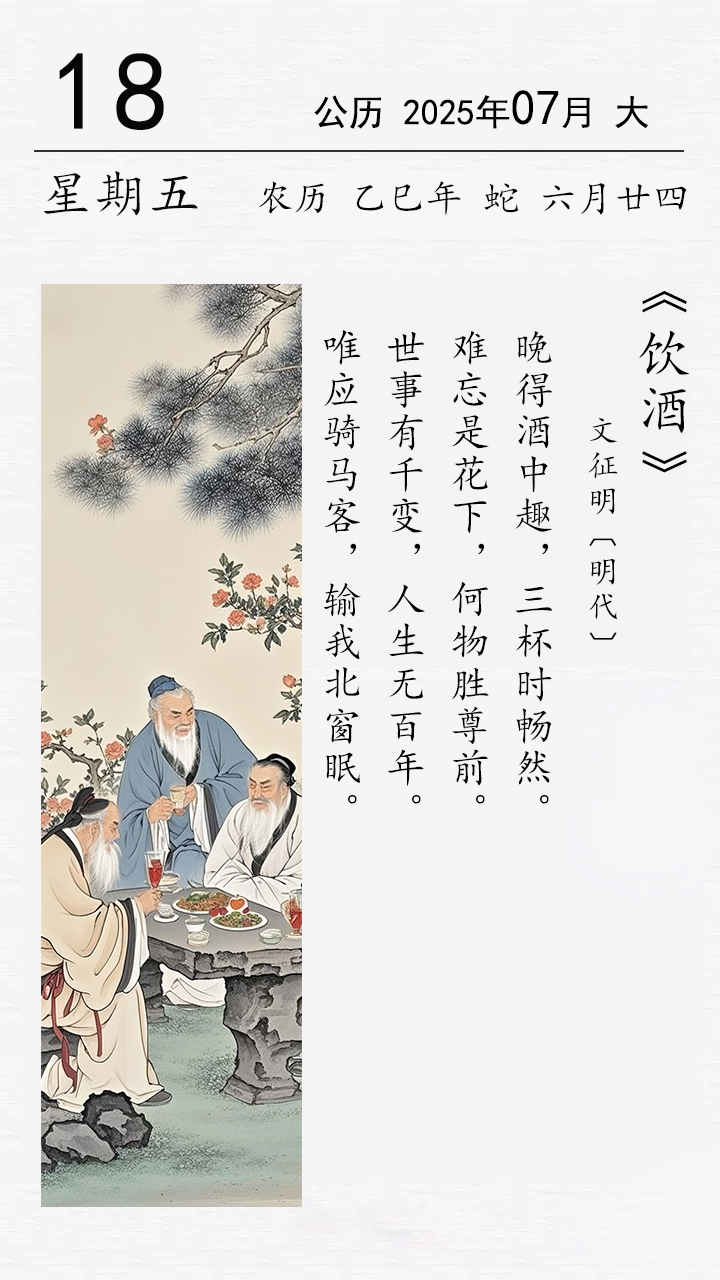 18
公历 2025年07月 大
星期五
农历 乙巳年 蛇 六月廿四
《饮酒》
文征明〔明代〕
晚得酒中趣，三杯时畅然。
难忘是花下，何物胜尊前。
世事有千变，人生无百年。
唯应骑马客，输我北窗眠。